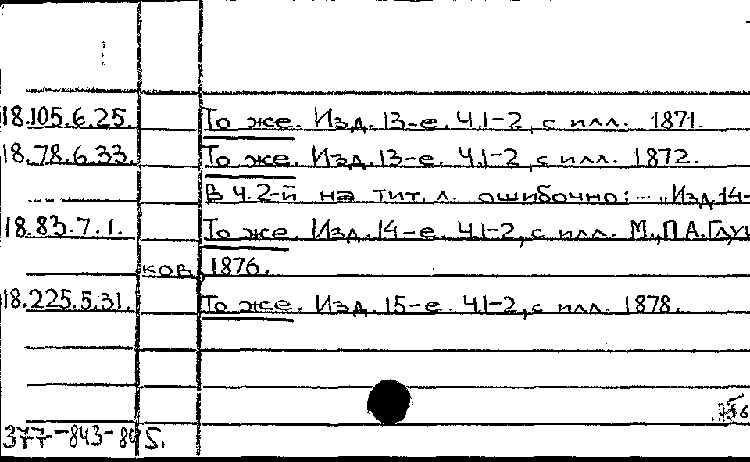 18.105.6.25. То же. Изд. 13-е. Ч.1-2, с илл. 1871.
18.78.6.33. То же. Изд. 13-е. Ч.1-2, с илл. 1872.
В Ч.2-й на тит. л. ошибочно: "Изд. 14-
18.83.7.1. То же. Изд. 14-е. Ч.1-2, с илл. М., П.А. Глуш
ков, 1876.
18.225.5.31. То же. Изд. 15-е. Ч.1-2, с илл. 1878.
377-843-845.